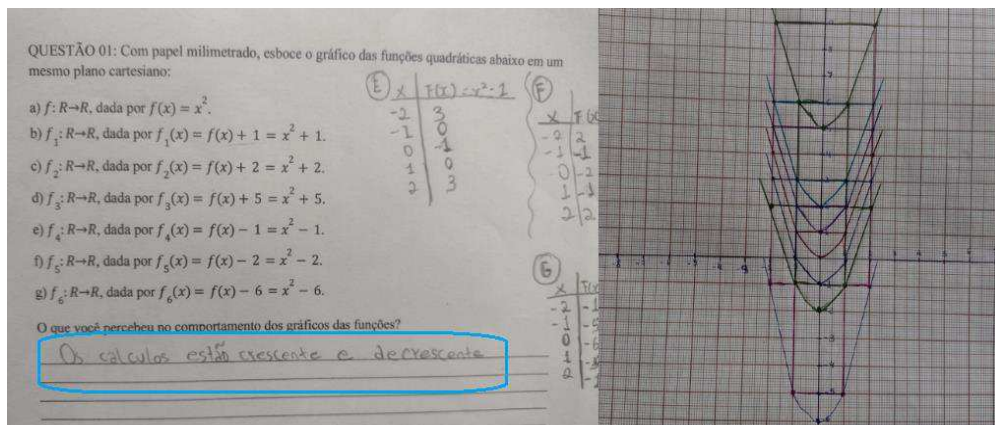 QUESTÃO 01: Com papel milimetrado, esboce o gráfico das funções quadráticas abaixo em um
mesmo plano cartesiano:
a) f: R→R, dada por f(x) = x².
b) f₁: R→R, dada por f₁(x) = f(x) + 1 = x² + 1.
c) f₂: R→R, dada por f₂(x) = f(x) + 2 = x² + 2.
d) f₃: R→R, dada por f₃(x) = f(x) + 5 = x² + 5.
e) f₄: R→R, dada por f₄(x) = f(x) − 1 = x² − 1.
f) f₅: R→R, dada por f₅(x) = f(x) − 2 = x² − 2.
g) f₆: R→R, dada por f₆(x) = f(x) − 6 = x² − 6.
O que você percebeu no comportamento dos gráficos das funções?
Os calculos estão crescente e decrescente
E
X F(x) = x² - 1
-2 3
-1 0
0 -1
1 0
2 3
F
X F(x
-2 2
-1 -1
0 -2
1
2 2
G
X F(x
-2
-1 -5
0 -6
1
2